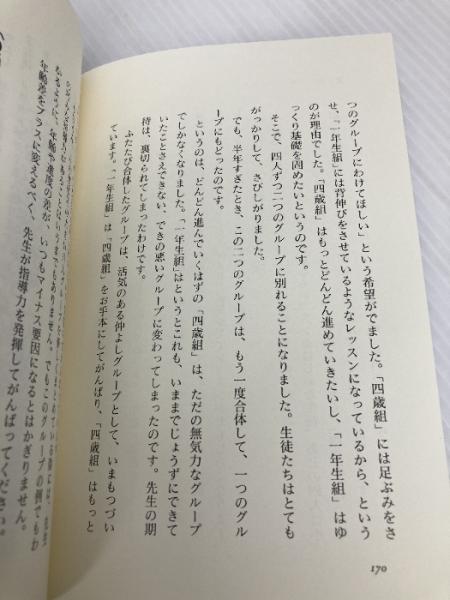 つのグループにわけてほしい」という希望がでました。「四歳組」には足ぶみをさ
せ、「一年生組」には背伸びをさせているようなレッスンになっているから、という
のが理由でした。「四歳組」はもっとどんどん進めていきたいし、「一年生組」はゆ
っくり基礎を固めたいというのです。
そこで、四人ずつ二つのグループに別れることになりました。生徒たちはとても
がっかりして、さびしがりました。
でも、半年すぎたとき、この二つのグループは、もう一度合体して、一つのグル
ープにもどったのです。
というのは、どんどん進んでいくはずの「四歳組」は、ただの無気力なグループ
でしかなくなりました。「一年生組」はというとこれも、いままでじょうずにできて
いたことさえできない、できの悪いグループに変わってしまったのです。先生の期
待は、裏切られてしまったわけです。
ふたたび合体したグループは、活気のある仲よしグループとして、いまもつづい
ています。「一年生組」は「四歳組」をお手本にしてがんばり、「四歳組」はもっと
もありません。でもこのグループの例でもわ
なるように、年齢や進度の差が、いつもマイナス要因になるとはかぎりません。
年齢差をプラスに変えるべく、先生が指導力を発揮してがんばってください。
170